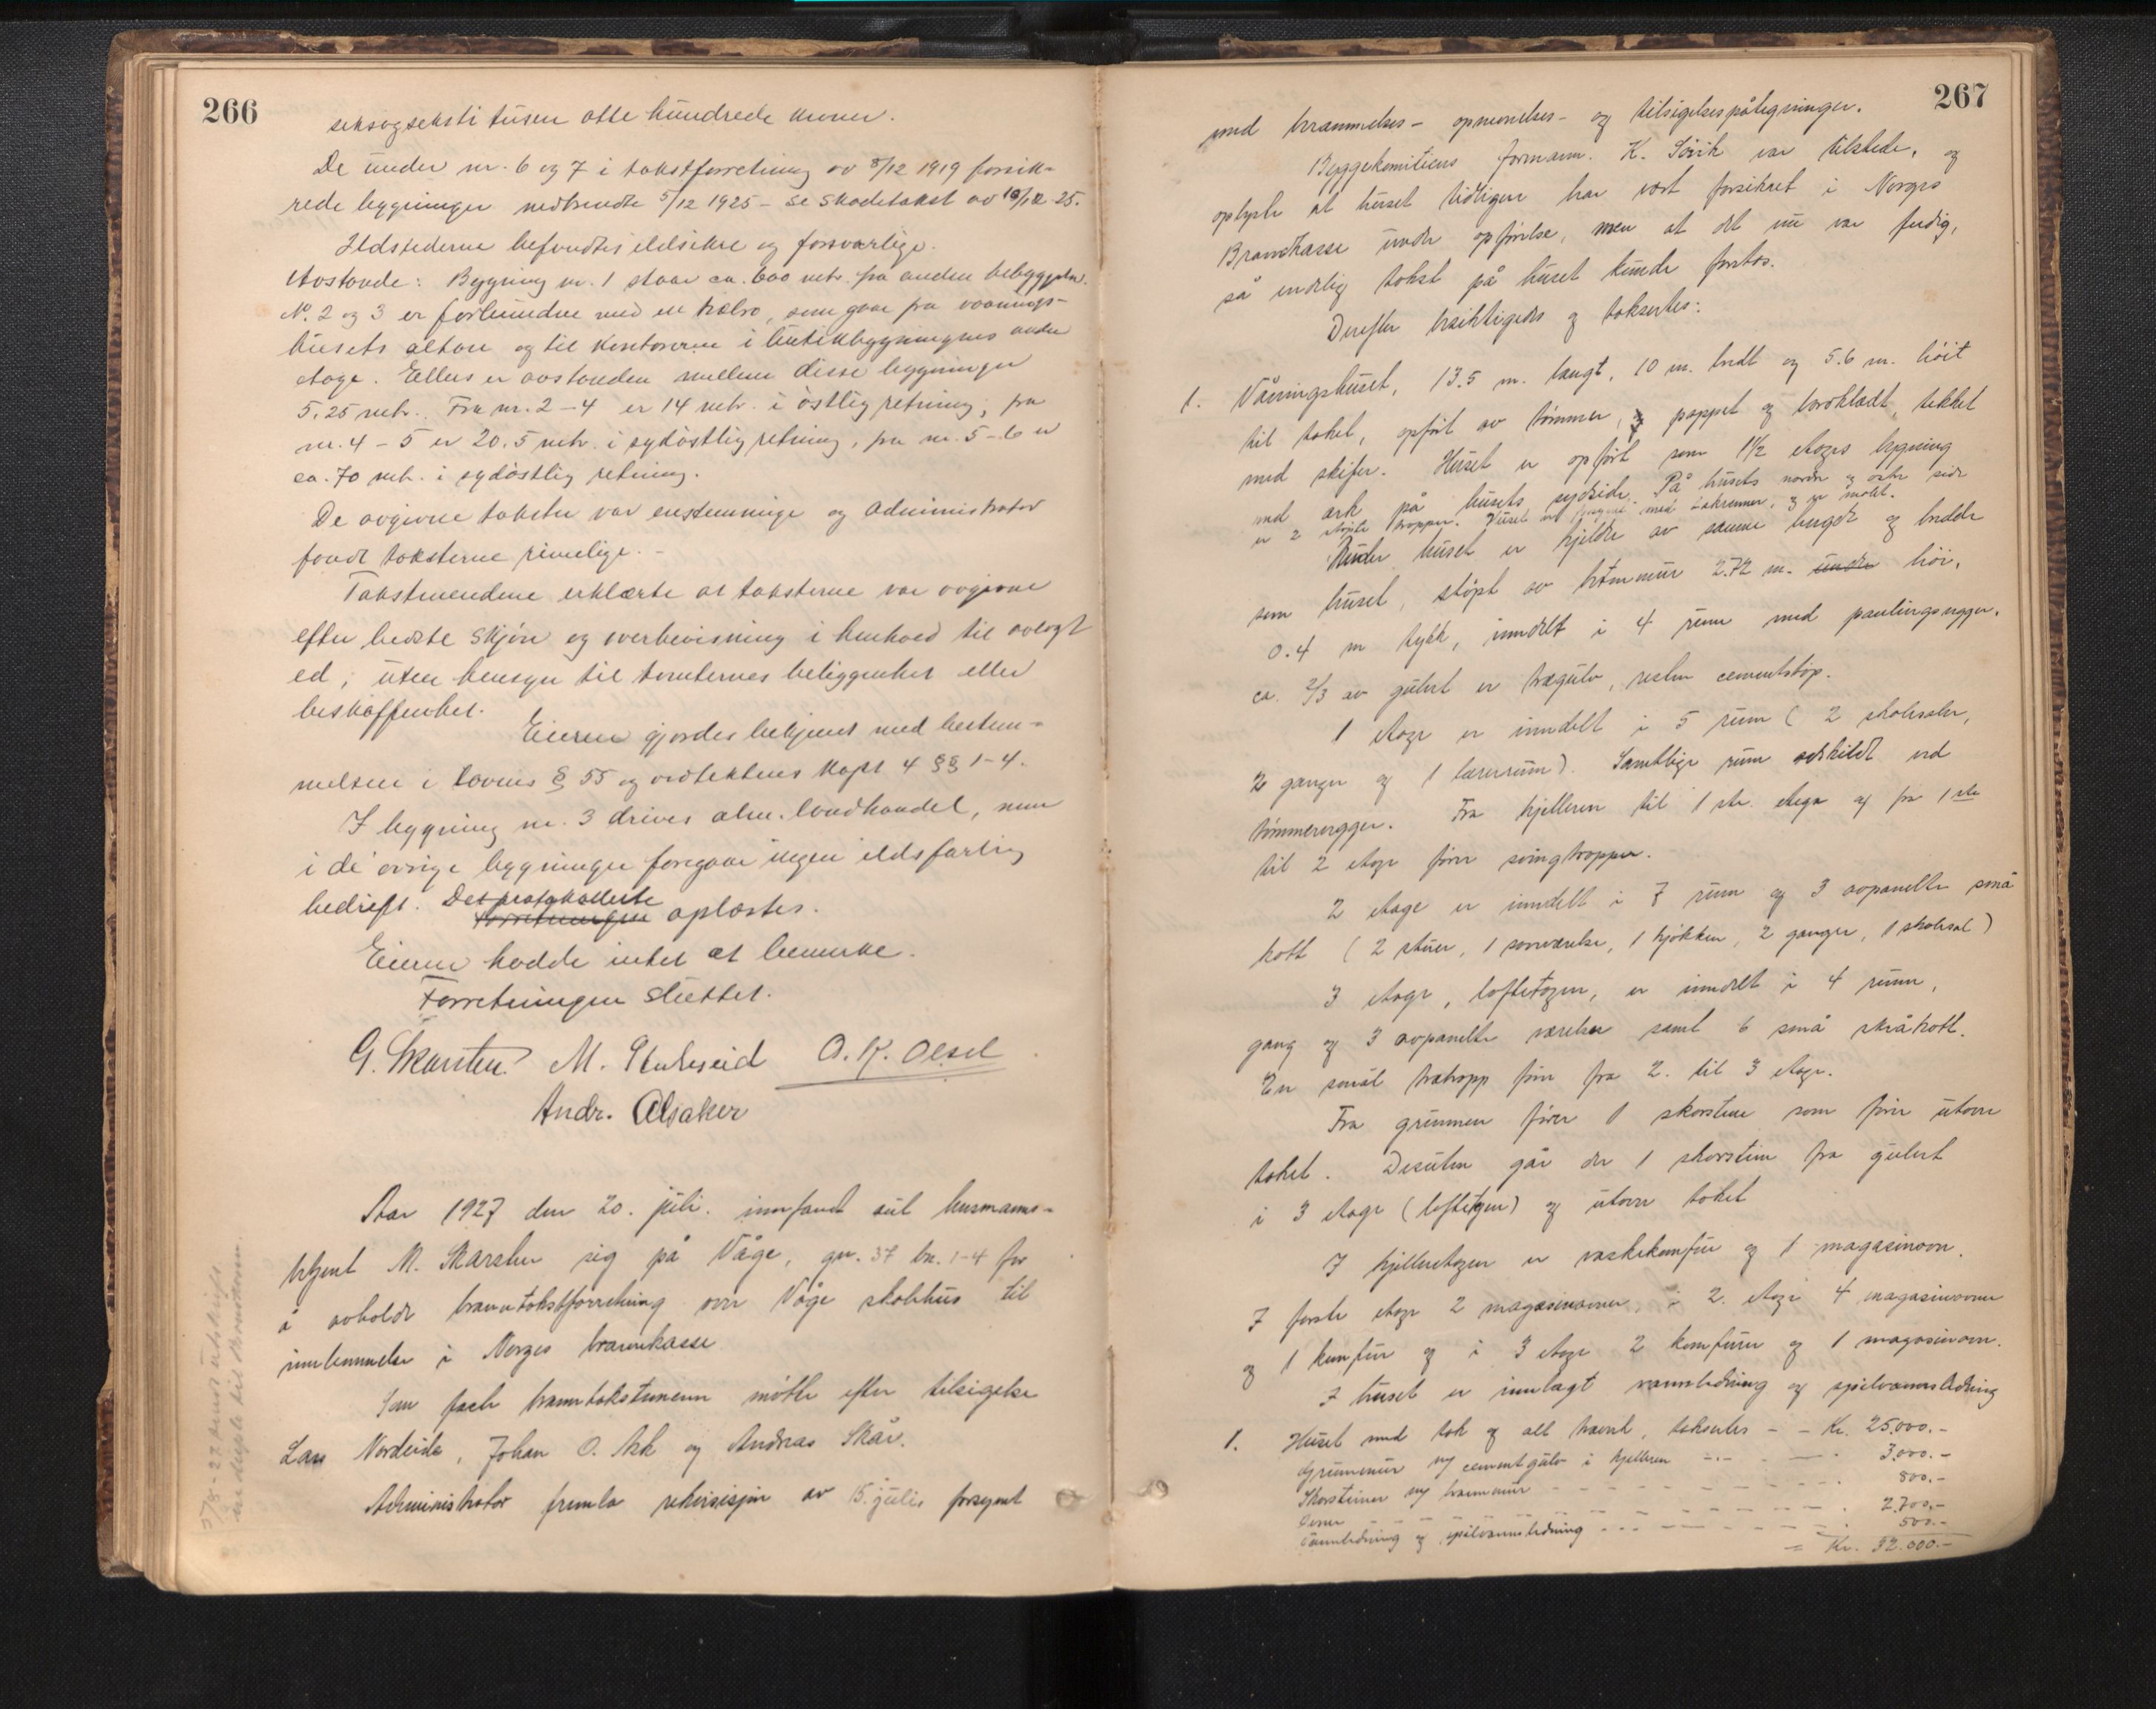 266
seksogseksti tusen otte hundrede kroner.
De under nr. 6 og 7 i takstforretning av 8/12 1919 forsik-
rede bygninger nedbrendte 5/12 1925 – se skadetakst av 10/12 25.
Ildstederne befandtes ildsikre og forsvarlige.
Avstande: Bygning nr. 1 staar ca. 600 mtr. fra anden bebyggelse.
No. 2 og 3 er forbundne med en træbro, som gaar fra vaanings-
husets altan og til kontorerne i butikbygningens anden
etage. Ellers er avstanden mellem disse bygninger
5.25 mtr. Fra nr. 2–4 er 14 mtr. i østlig retning, fra
nr. 4 – 5 er 20.5 mtr. i sydøstlig retning, fra nr. 5–6 er
ca. 70 mtr. i sydøstlig retning.
De avgivne takster var enstemmige og administrator
fandt taksterne rimelige. –
Takstmendene erklærte at taksterne var avgivne
efter bedste skjøn og overbevisning i henhold til avlagt
ed; uten hensyn til tomternes beliggenhet eller
beskaffenhet.
Eieren gjordes bekjent med bestem-
melsen i lovens § 55 og vedtektenes kapt 4 §§ 1–4.
I bygning nr. 3 drives alm. landhandel, men
i de øvrige bygninger foregaar ingen ildsfarlig
bedrift. Det protokollerte
forretningen oplæstes.
Eieren hadde intet at bemerke.
Forretningen sluttet.
G. Skarsten M. Stuheseid O. K. Olsel
Andr. Alsaker
Aar 1927 den 20. juli. innfandt sut lensmanns-
betjent M. Skarsten sig på Våge, gn. 37 bn. 1–4 for
å avholde branntakstforretning over Våge skolehus til
innlemmelse i Norges brannkasse
Som faste branntakstmenn møtte efter tilsigelse
Lars Nordeide, Johan O. Ask og Andreas Skår.
Administrator fremla rekvisisjon av 15. juli, forsynt
5/8–27 sendt utskrift
267
med berammelses – opnevnelses – og tilsigelsespåtegninger.
Byggekomiteens formann. K. Sörvik var tilstede, og
oplyste at huset tidligere har vært forsikret i Norges
Brandkasse under opførelse, men at det nu var ferdig,
så endelig takst på huset kunde foretas.
Derefter besiktigedes og taksertes:
1. Våningshuset, 13.5 m. langt, 10 m. bredt og 5.6 m. høit
til taket, opført av tømmer, pappet og bordklædt, tekket
med skifer. Huset er opført som 1½ etages bygning
med ark på husets sydside. På husets nordre og østre side
er 2 støpte trapper. Huset er forsynt med takrenner, og er malt.
Under huset er kjelder av samme lengde og bredde
som huset, støpt av betonmur 2.72 m. under høi,
0.4 m tykk, inndelt i 4 rum med panlingsvegger.
ca. 2/3 av gulvet er trægulv, resten cementstøp.
1 etage er inndelt i 5 rum ( 2 skolesaler,
2 ganger og 1 lærerrum). Samtlige rum adskildt ved
tømmervegger. Fra kjelleren til 1 ste. etage og fra 1 ste
til 2 etage fører svingtrapper.
2 etage er inndelt i 7 rum og 3 avpanelte små
kott ( 2 stuer, 1 soveværelse, 1 kjøkken, 2 ganger, 1 skolesal)
3 etage, loftetagen, er inndelt i 4 rum,
gang og 3 avpanelte værelser samt 6 små skråkott.
En smal trætrapp fører fra 2. til 3 etage.
Fra grunnen fører 1 skorsten som fører utover
taket. Desuten går der 1 skorstein fra gulvet
i 3 etage (loftetagen) og utover taket
I kjelleretagen er vaskekomfur og 1 magasinovn.
I første etage 2 magasinovner, i 2. etage 4 magasinovner
og 1 komfur og i 3 etage 2 komfurer og 1 magasinovn.
I huset er innlagt vannledning og spilvannsledning
1. Huset med tak og alt træverk, taksertes – – Kr. 25.000.–
Grunnmur og cementgulv i kjelleren – – – 3.000.–
Skorsteiner og brannmur – – – 800.–
Ovner – – – 2.700.–
Vannledning og spilvannsledning – – – 500.–
= Kr. 32.000.–